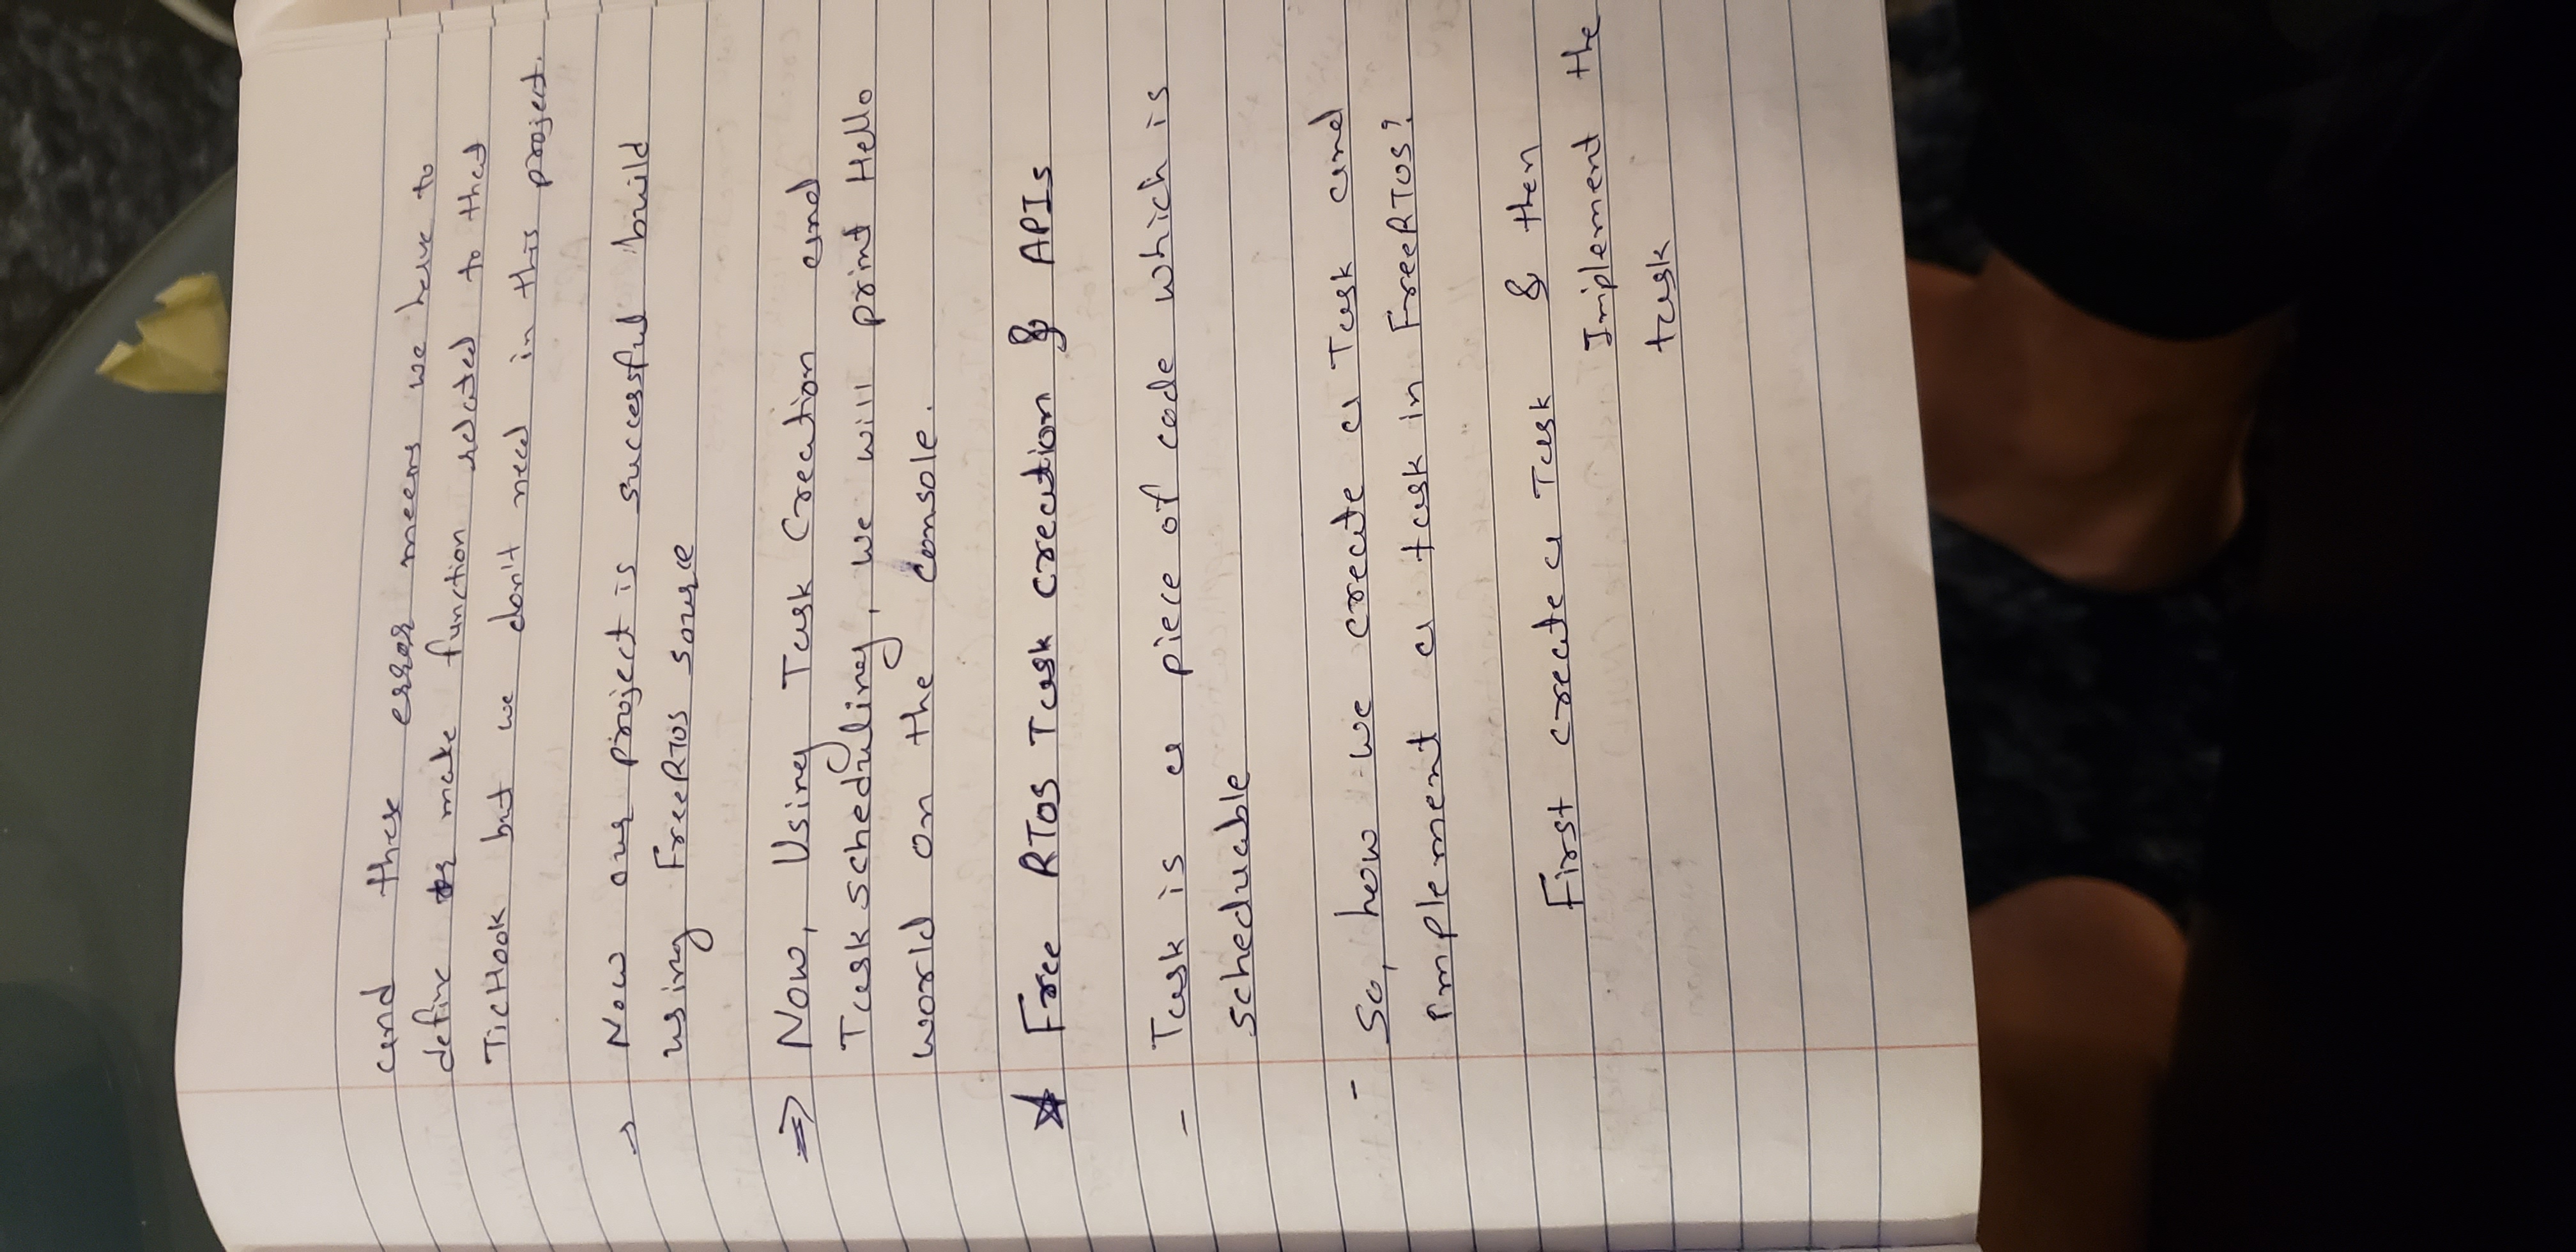 and these error means we have to
define or make function related to that
TicHook but we don't need in this project.
→ Now our project is successful build
using FreeRTOS source
⇒ Now, Using Task Creation and
Task scheduling, we will print Hello
world on the console.
☆ Free RTOS Task creation & APIs
- Task is a piece of code which is
scheduable
- So, how we create a Task and
implement a task in FreeRTOS?
First create a Task & then
Implement the
task